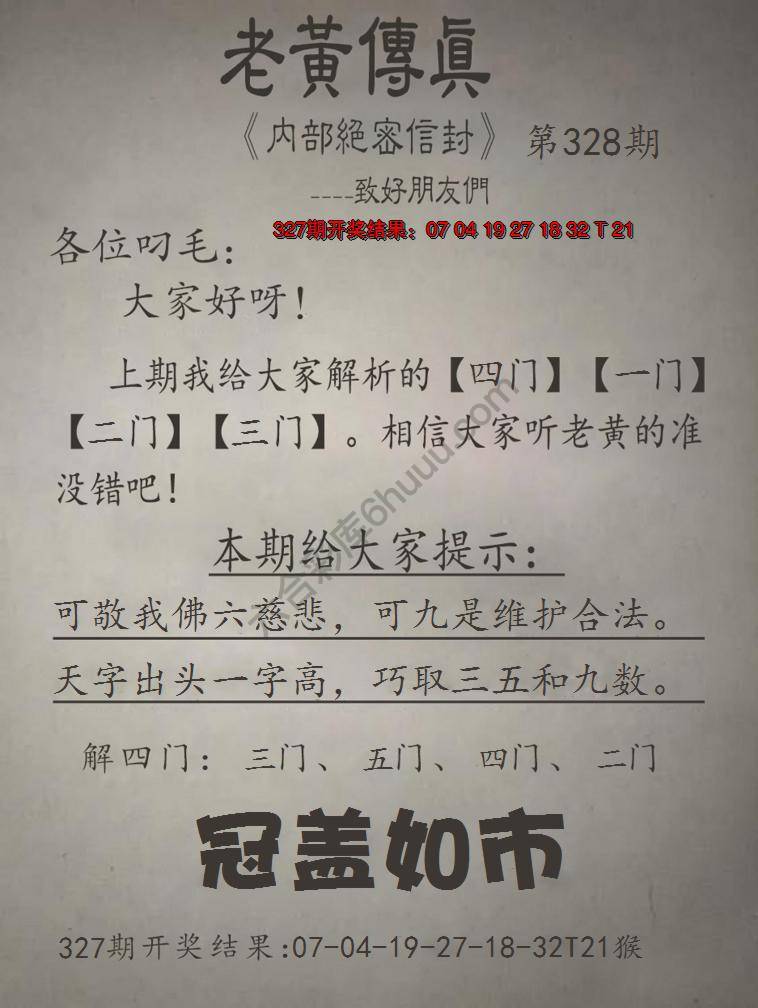 老黃傳真
《内部絕密信封》 第328期
----致好朋友們
327期开奖结果：07 04 19 27 18 32 T 21
各位叼毛：
大家好呀！
上期我给大家解析的【四门】【一门】
【二门】【三门】。相信大家听老黄的准
没错吧！
本期给大家提示：
可敬我佛六慈悲，可九是维护合法。
天字出头一字高，巧取三五和九数。
解四门：三门、五门、四门、二门
冠盖如市
327期开奖结果:07-04-19-27-18-32T21猴
六合彩库6huuu.com